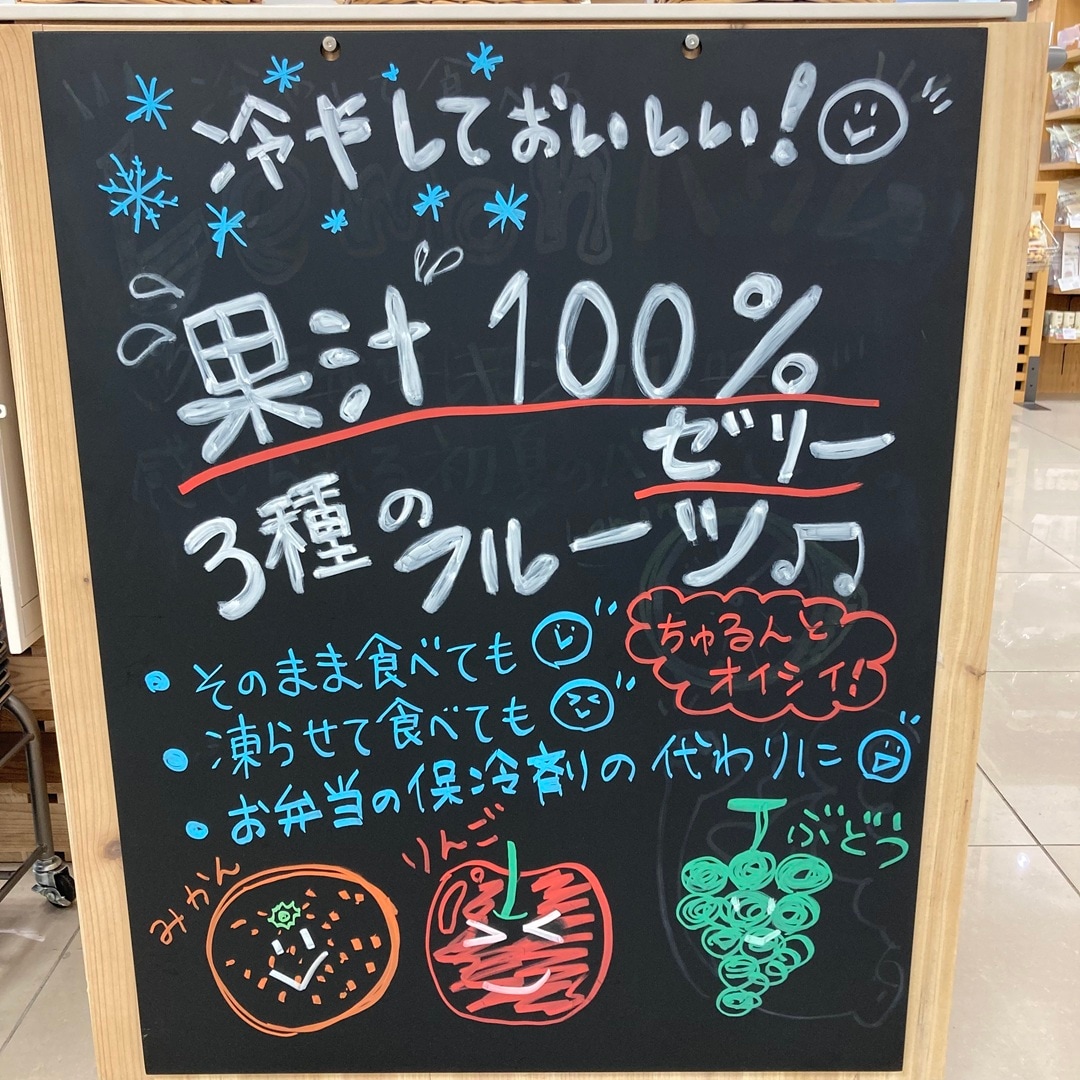 冷やしておいしい!
果汁100%
ゼリー
3種のフルーツ♫
ちゅるんと
オイシイ!
• そのまま食べても
• 凍らせて食べても
• お弁当の保冷剤の代わりに
みかん
りんご
ぶどう